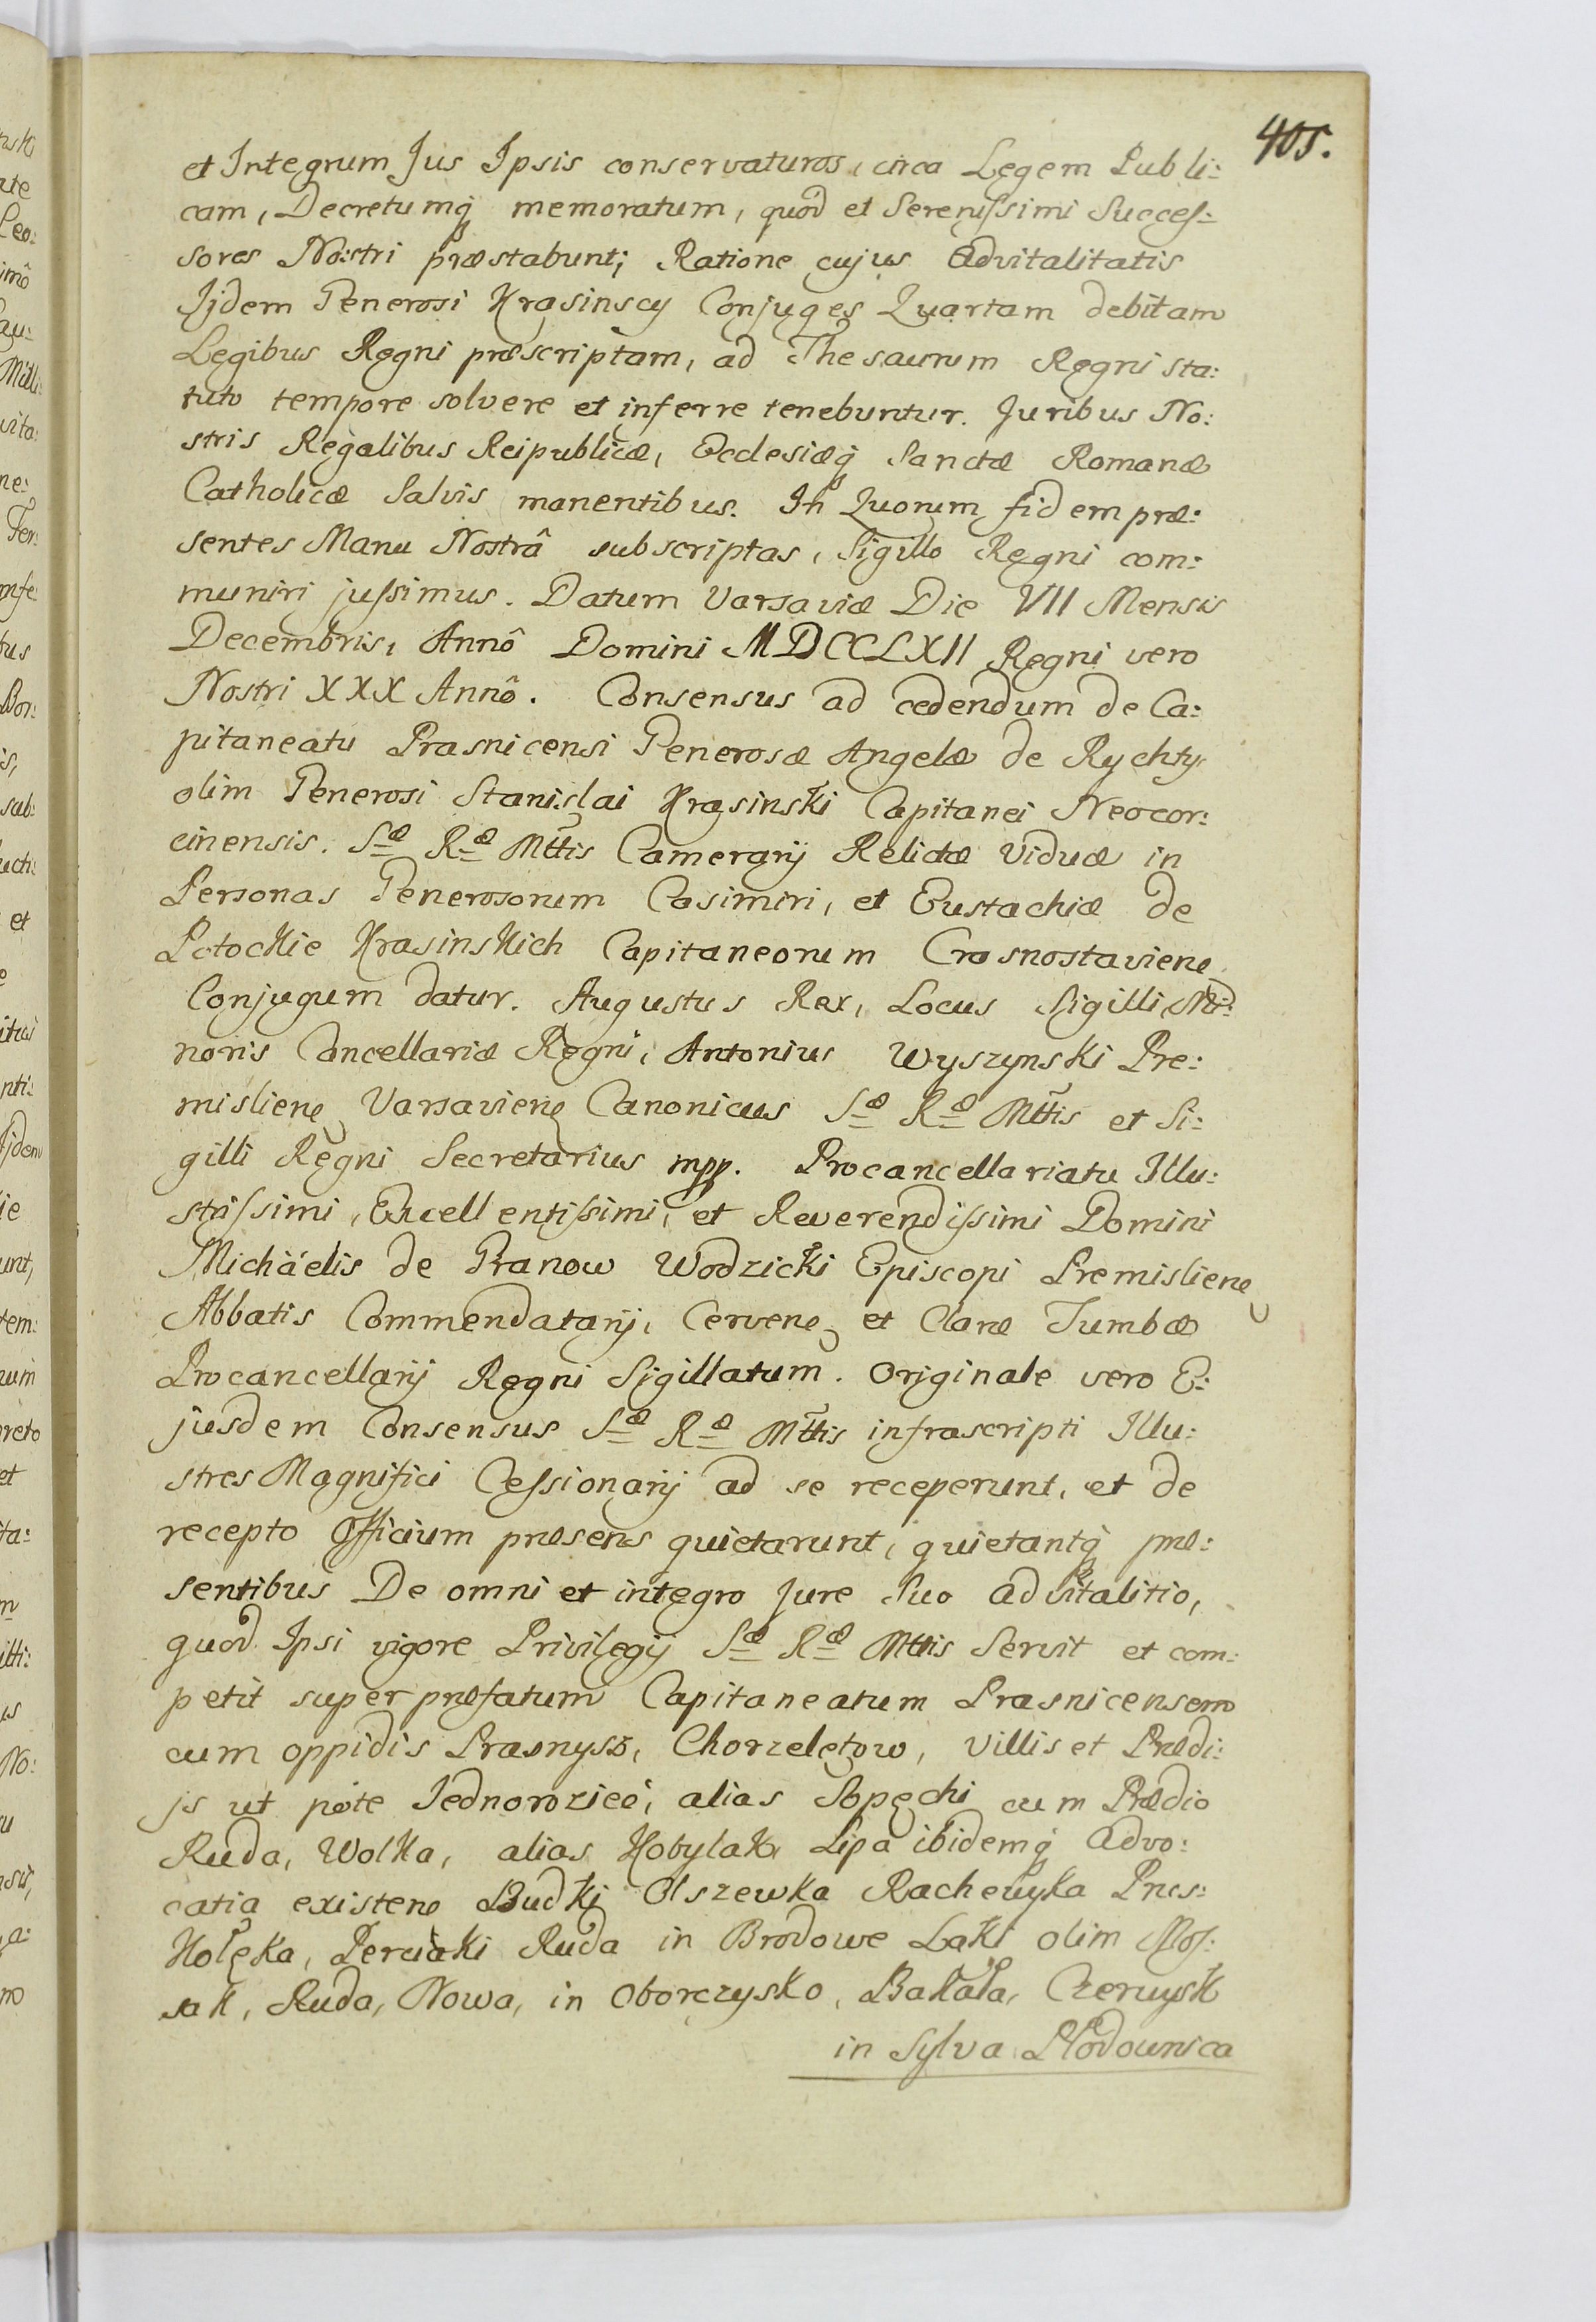 405.
et Integrum Jus Ipsis conservaturos, circa Legem Publi:
cam, Decretumq́ memoratum, quod et Serenissimi Succes:
sores Nostri præstabunt; Ratione cujus Advitalitatis
Ijdem Generosi Krasinscy Conjuges Quartam debitam
Legibus Regni præscriptam, ad Thesaurum Regni sta:
tuto tempore solvere et inferre tenebuntur. Juribus No:
stris Regalibus Reipublicæ, Ecclesiæq́ Sanctæ Romanæ
Catholicæ Salvis manentibus. In Quorum fidem præ:
sentes Manu Nostrâ subscriptas, Sigillo Regni com:
muniri jussimus. Datum Varsaviæ Die VII Mensis
Decembris, Annô Domini MDCCLXII Regni vero
Nostri XXX Annô. Consensus ad cedendum de Ca:
pitaneatu Prasnicensi Generosæ Angelæ de Rychty
olim Generosi Stanislai Krasinski Capitanei Neocor:
cinensis. Sæ Ræ Mttis Camerarij Relictæ Viduæ in
Personas Generosorum Casimiri, et Eustachiæ de
Potockie Krasinskich Capitaneorum Crasnostaviene
Conjugum datur. Augustus Rex, Locus Sigilli Mi:
noris Cancellariæ Regni, Antonius Wyszynski Pre:
misliene Varsaviene Canonicus Sæ Ræ Mttis et Si:
gilli Regni Secretarius mpp. Procancellariatu Illu:
strissimi, Excellentissimi, et Reverendissimi Domini
Michaélis de Granow Wodzicki Episcopi Premisliene
Abbatis Commendatarij, Cervene et Claræ Tumbæ
Procancellarij Regni Sigillatum. Originale vero E:
jusdem Consensus Sæ Ræ Mttis infrascripti Illu:
stres Magnifici Cessionarij ad se receperunt, et de
recepto Officium præsens quietarunt, quietantq́ præ:
sentibus De omni et integro Jure Suo advitalitio,
quod Ipsi vigore Privilegij Sæ Ræ Mttis Servit et com:
petit super præfatum Capitaneatum Prasnicensem
cum oppidis Prasnysz, Chorzeletow, Villis et Prædi:
js ut pote Jednorozicé, alias Stęgchi cum Prædio
Ruda, Wolka, alias Kobylak, Lipa ibidemq́ Advo:
catia existene Budki Olszewka Rachewyka Pres:
Holęka, Perciaki Ruda in Brodowe Łaki olim Mos:
sak, Ruda, Nowa, in Oborczysko, Bakała, Czerwysk
in Sylva Płodownica